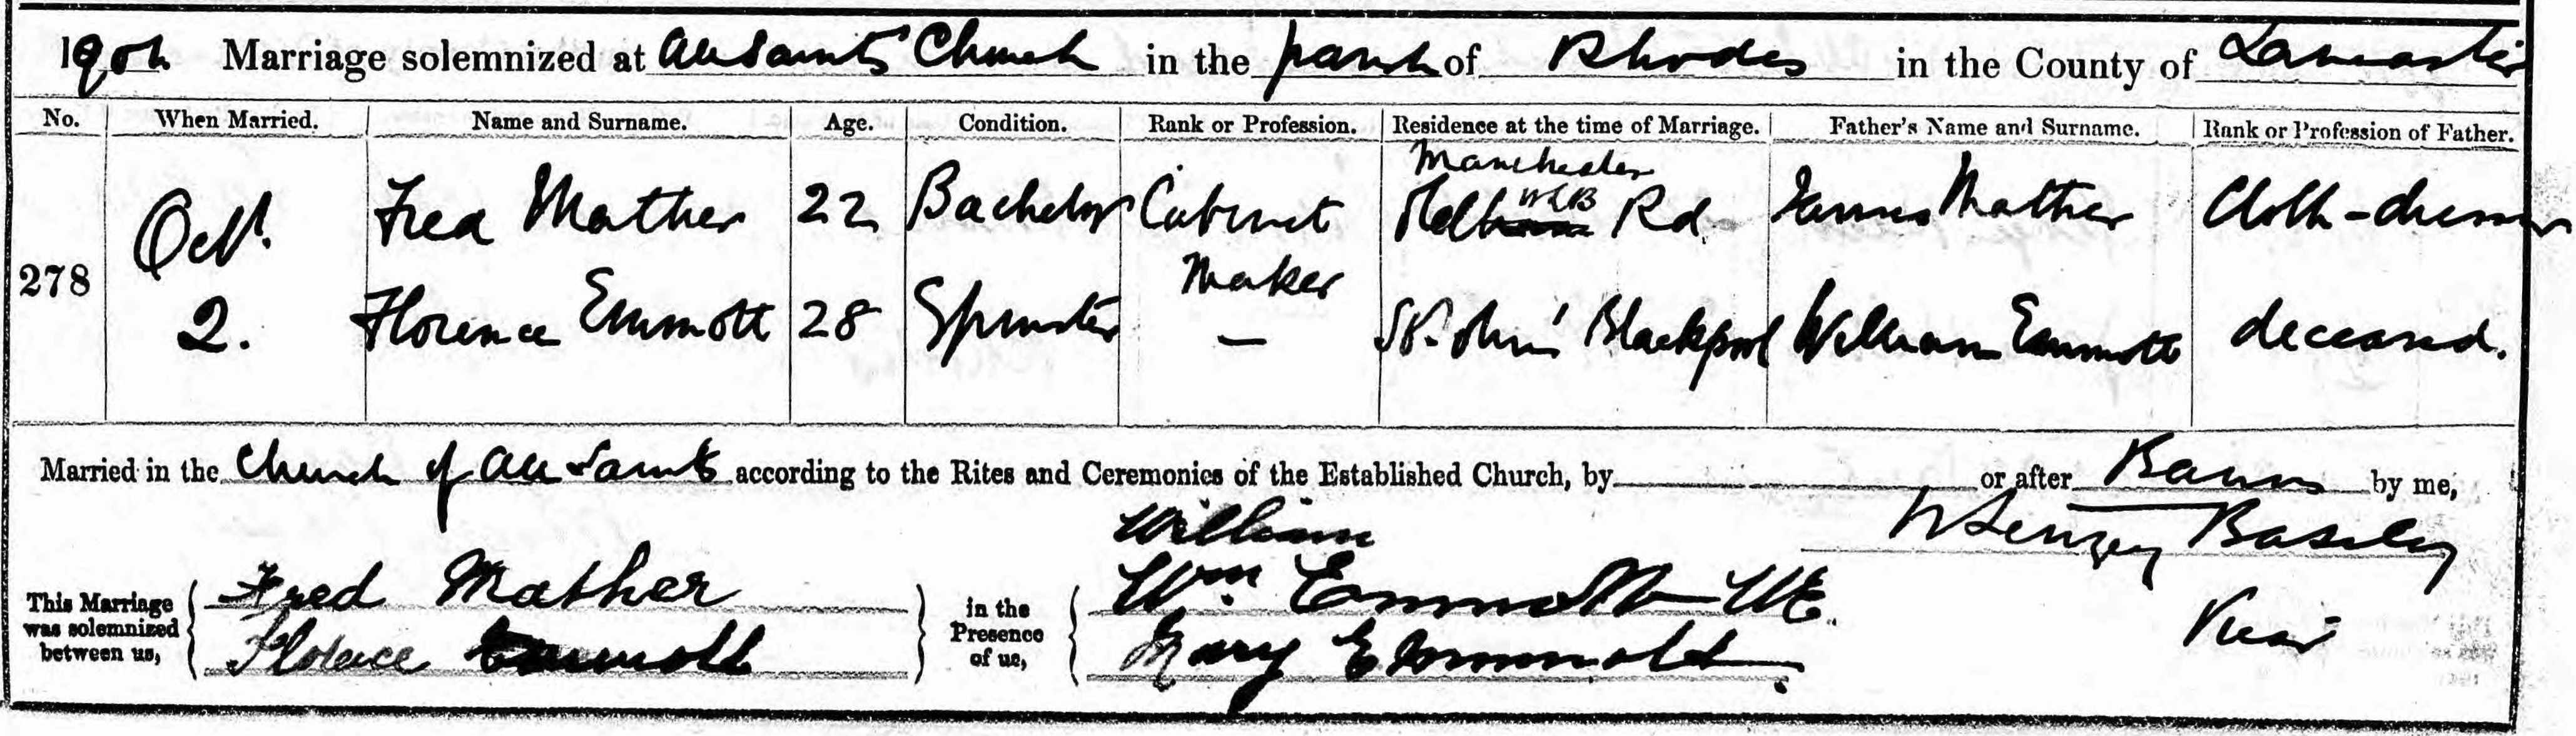 190 Marriage solemnized at All Saints' Church in the parish of Rhodes in the County of Lancaster
No. When Married. Name and Surname. Age. Condition. Rank or Profession. Residence at the time of Marriage. Father's Name and Surname. Rank or Profession of Father.
Manchester
278 Oct. 2. Fred Mather 22 Bachelor Cabinet Maker Rd. James Mather Cloth-dresser
Florence Emmott 28 Spinster — St. Johns' Blackpool William Emmott deceased.
Married in the Church of All Saints according to the Rites and Ceremonies of the Established Church, by or after Banns by me,
This Marriage was solemnized between us, Fred Mather Florence Emmott in the Presence of us, William Wm Emmott WE. Mary Emmott.
W Bassley
Vicar